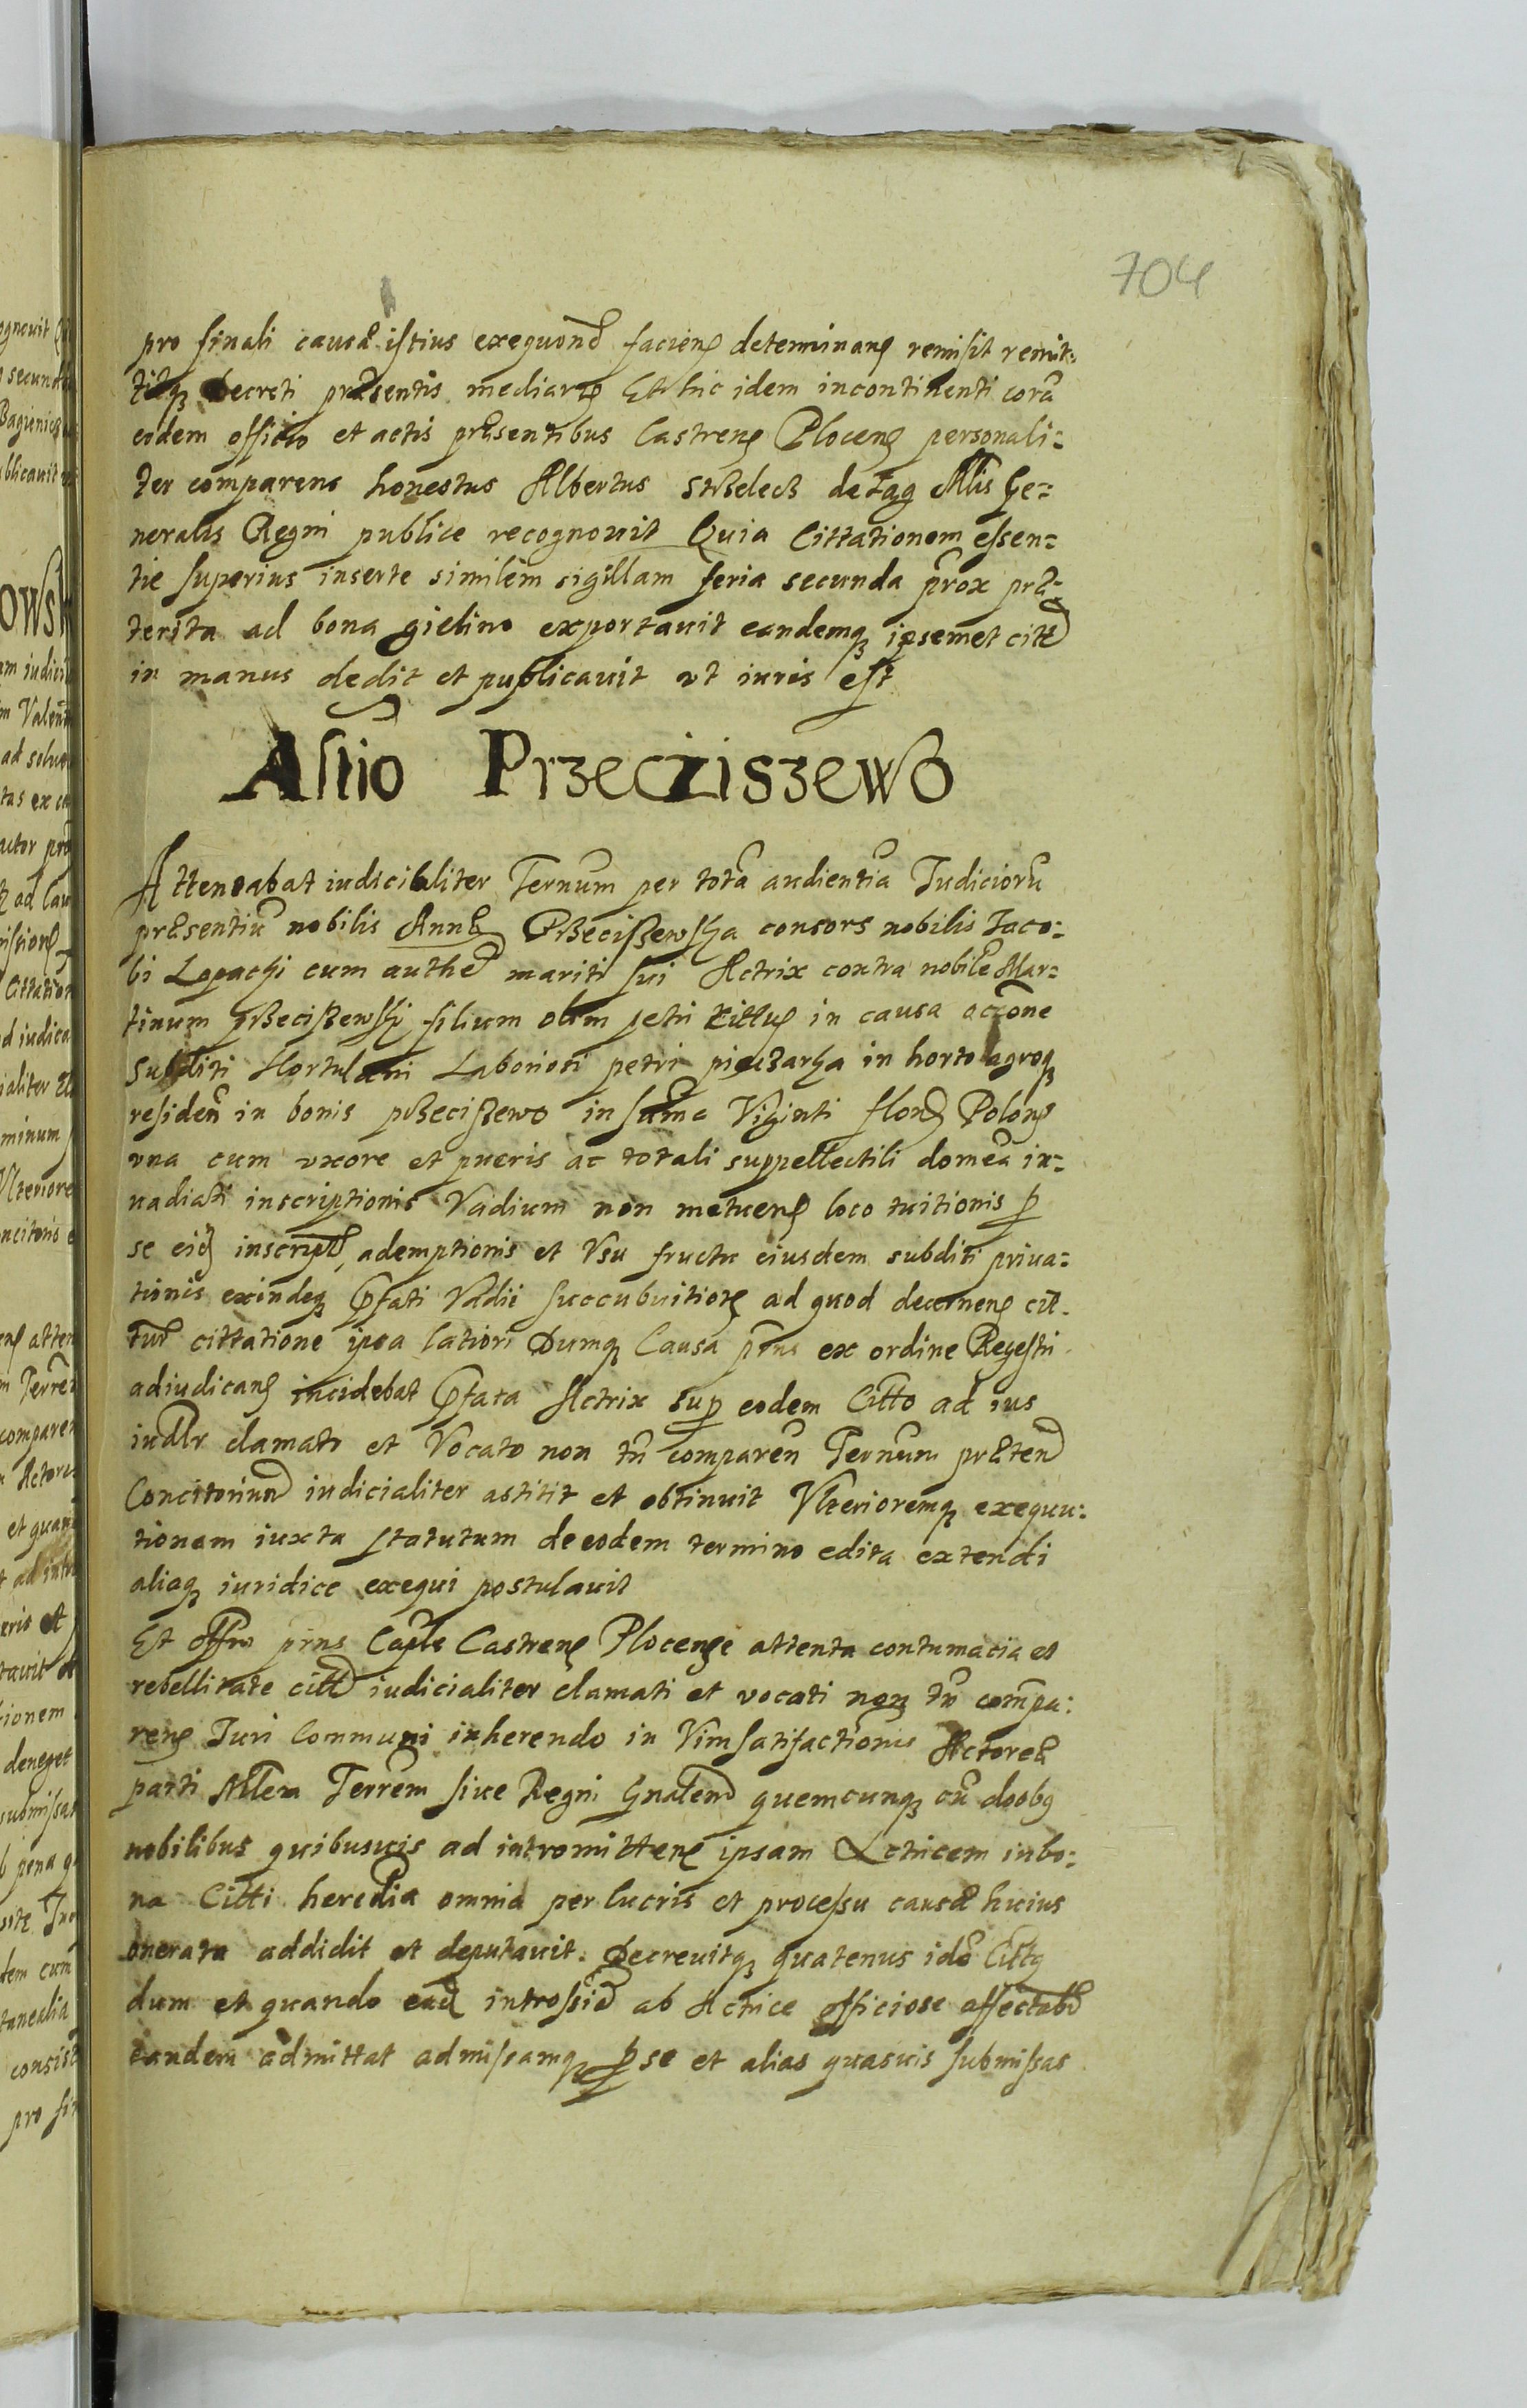 704
pro finali causæ istius exequond faciens determinans remisit remit:
titqз Decreti præsentis mediante Et hic idem incontinenti corã
eodem officio et actis præsentibus Castrens Plocens personali:
ter comparens honestus Albertus Strzelecz de Mlis Ge:
neralis Regni publice recognovit Quia Cittationem essen:
tie superius inserte similem sigillam feria secunda prox præ:
terita ad bona gielino exportauit eandemqз ipsemet citt
in manus dedit et publicauit vt iuris est
Astio Przecziszewo
Attentabat iudicialiter Ternum per totã audientiã Judiciorũ
præsentiũ nobilis Annæ Przeciszewska consors nobilis Jaco:
bi Lopacki cum authe mariti sui Actrix contra nobile Mar:
tinum przeciszewski filium olim petri Cittus in causa accõne
Subditi Hortulani Laboriosi petri piekarka in horto agroqз
residen in bonis przeciszewo in suma Viginti flons Polons
vna cum vxore et pueris ac totali suppellectili domea in:
uadiati inscriptionis Vadium non metuens loco tuitionis p
se eid inscript, ademptionis et Vsu fructu eiusdem subditi priua:
tionis exindeqз Pfati Vadii succubuitiois ad quod decernens cit
tur cittatione ipsa latiori Dumqз Causa pns ex ordine Regestri
adiudicans incidebat Pfata Actrix sup eodem Citto ad ius
iudlr clamato et Vocato non tñ comparen Ternum prætend
Concitorium iudicialiter astitit et obtinuit Vlterioremqз exequu:
tionem iuxta statutum de eodem termino edita extendi
aliaqз iuridice exequi postulauit
Et offm prns Capte Castrens Plocense attenta contumacia et
rebellitate citt iudicialiter clamati et vocati non tñ compa:
rens Juri Communi inherendo in Vim satifactionis Actoreæ
parti Mlem Terrem siue Regni Gnalem quemcunqз cũ doobg
nobilibus quibusuis ad intromittens ipsam Actricem in bo:
na Citti heredia omnia per lucris et processu causæ huius
onerata addidit et deputauit. Decreuitqз quatenus idẽ Cittg
dum et quando ead intromssio ab Actrice officiose affectabr
eandem admittat admissamqз p se et alias quasuis submissas